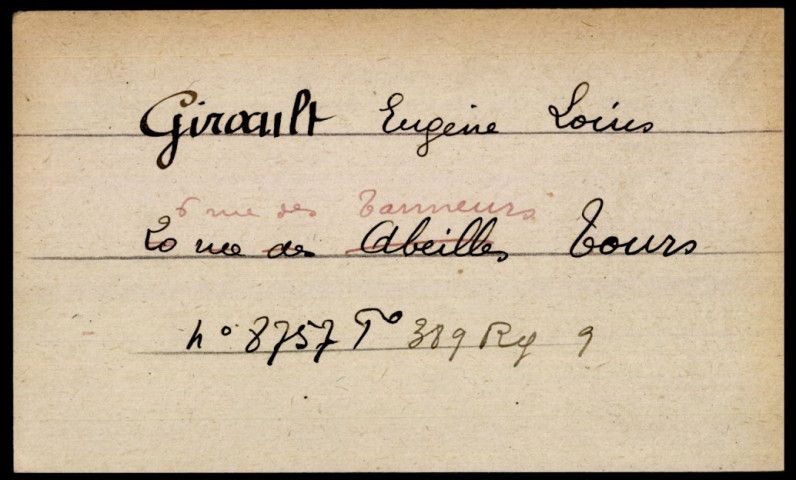 Girault Eugène Louis
6 rue des Tanneurs
20 rue des Abeilles Tours
n° 8757 F° 389 Rg 9